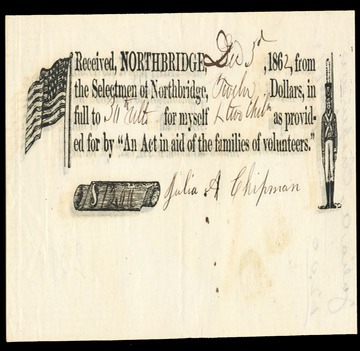 Received, NORTHBRIDGE, Dec 3d, 1862, from
the Selectmen of Northbridge, Twelve Dollars, in
full to 30th ult for myself & two chiln as provid-
ed for by "An Act in aid of the families of volunteers."
Julia A Chipman